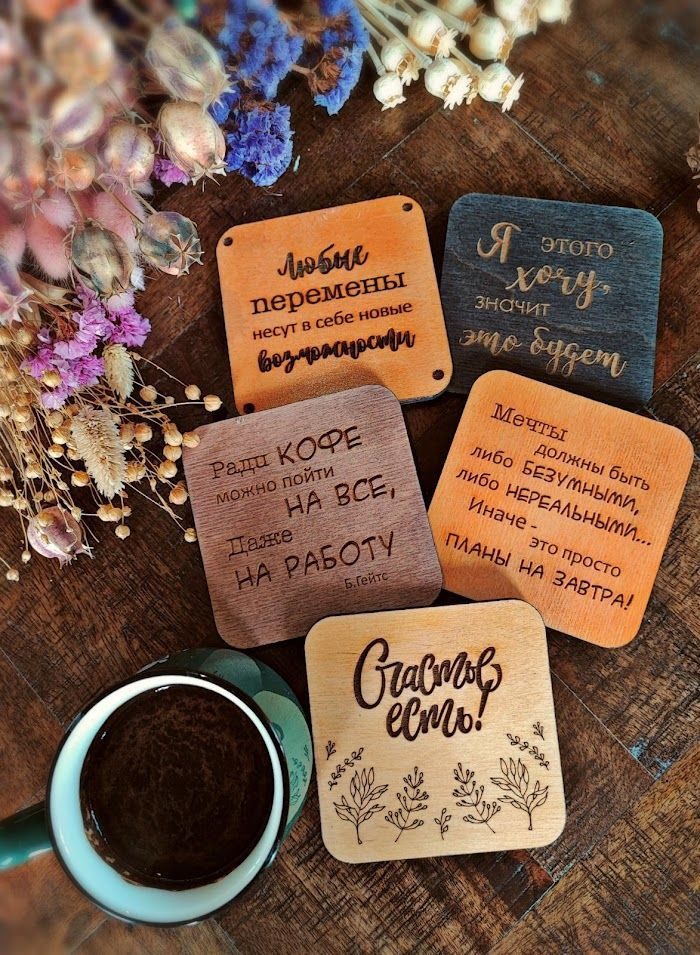 Любые
перемены
несут в себе новые
возможности
Я этого
хочу,
значит
это будет
Ради КОФЕ
можно пойти
НА ВСЕ,
Даже
НА РАБОТУ
Б.Гейтс
Мечты
должны быть
либо БЕЗУМНЫМИ,
либо НЕРЕАЛЬНЫМИ...
Иначе -
это просто
ПЛАНЫ НА ЗАВТРА!
Счастье
есть!